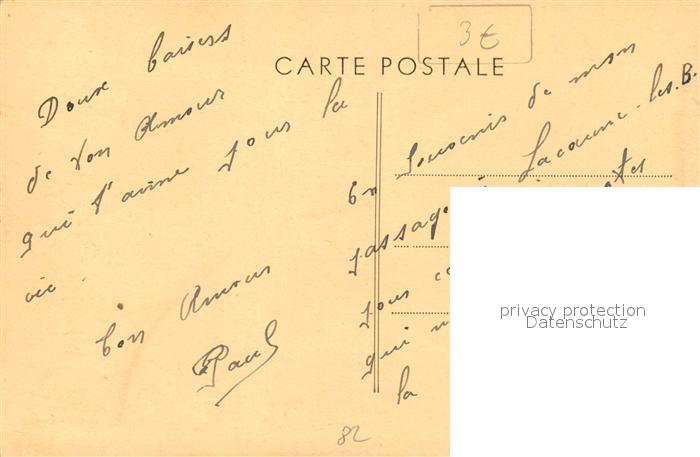 3€
CARTE POSTALE
Doux baisers
de ton Amour
qui t'aime pour la
vie.
ton Amour
Paul
En Souvenir de mon
passage Lacaune-les-B.
tous
qui
la
privacy protection
Datenschutz
82